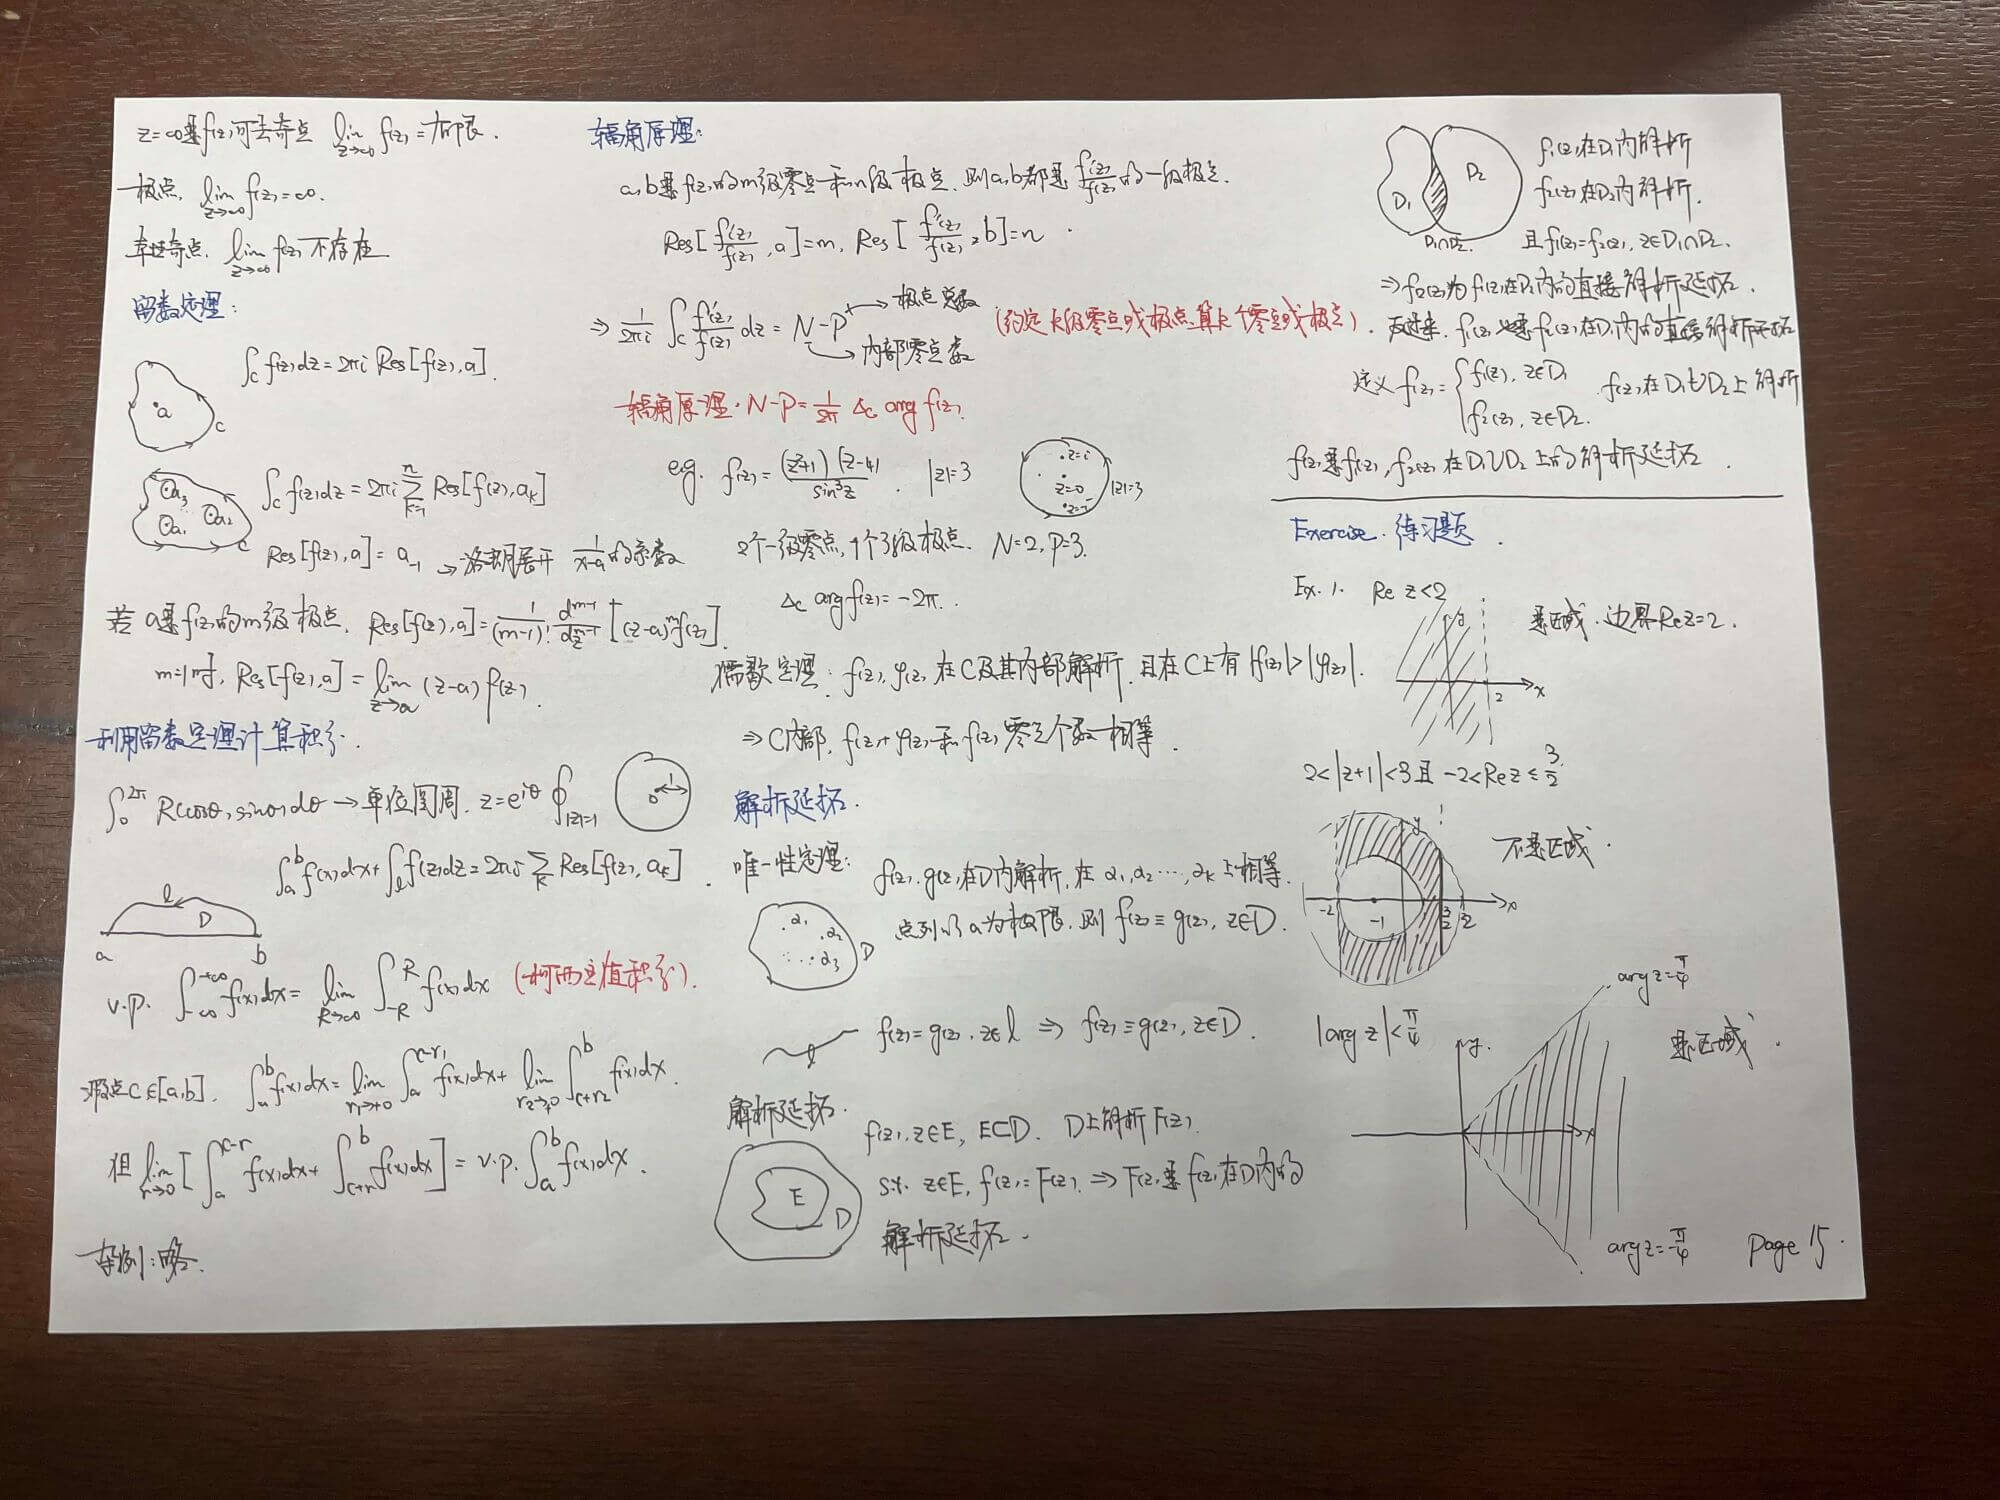 z=∞是f(z)可去奇点 lim_{z→∞} f(z)=有限.
极点. lim_{z→∞} f(z)=∞.
本性奇点. lim_{z→∞} f(z) 不存在
留数定理:
∫_C f(z)dz=2πi Res[f(z),a].
a
C
a₃
a₁
a₂
C
∫_C f(z)dz=2πi ∑_{k=1}^{n} Res[f(z),a_k]
Res[f(z),a]=a₋₁ → 洛朗展开 1/(x-a) 的系数
若 a是f(z)的m级极点. Res[f(z),a]=1/(m-1)! d^{m-1}/dz^{m-1} [(z-a)^m f(z)].
m=1时, Res[f(z),a]=lim_{z→a} (z-a) f(z).
利用留数定理计算积分.
∫_0^{2π} R(cosθ,sinθ)dθ → 单位圆周. z=e^{iθ} ∮_{|z|=1}
0
1
∫_a^b f(x)dx+∫_l f(z)dz=2πi ∑_k Res[f(z),a_k].
l
D
a
b
v.p. ∫_{-∞}^{+∞} f(x)dx= lim_{R→∞} ∫_{-R}^{R} f(x)dx (柯西主值积分).
瑕点C∈[a,b]. ∫_a^b f(x)dx= lim_{r₁→+0} ∫_a^{c-r₁} f(x)dx+ lim_{r₂→+0} ∫_{c+r₂}^b f(x)dx.
但 lim_{r→0} [∫_a^{c-r} f(x)dx+ ∫_{c+r}^b f(x)dx] = v.p. ∫_a^b f(x)dx.
举例:略.
辐角原理:
a,b是f(z)的m级零点和n级极点. 则a,b都是 f'(z)/f(z) 的一级极点.
Res[f'(z)/f(z), a]=m, Res[f'(z)/f(z), b]=n.
⇒ 1/(2πi) ∫_C f'(z)/f(z) dz = N-P
→ 极点总数
→ 内部零点数
(约定k级零点或极点算k个零点或极点).
辐角原理. N-P=1/(2π) Δ_C arg f(z).
e.g. f(z)=(z²+1)(z-4)/sin³z. |z|=3
z=i
z=0
z=-i
|z|=3
2个一级零点, 1个3级极点. N=2, P=3.
Δ_C arg f(z)=-2π.
儒歇定理: f(z),φ(z) 在C及其内部解析. 且在C上有 |f(z)|>|φ(z)|.
⇒ C内部, f(z)+φ(z) 和 f(z) 零点个数相等.
解析延拓.
唯一性定理: f(z).g(z)在D内解析, 在 α₁,α₂…,α_k 上相等.
点列以a为极限. 则 f(z)≡g(z), z∈D.
α₁
α₂
α₃
D
l
f(z)=g(z), z∈l ⇒ f(z)≡g(z), z∈D.
解析延拓.
E
D
f(z), z∈E, E⊂D. D上解析 F(z).
s.t. z∈E, f(z)=F(z) ⇒ F(z)是f(z)在D内的
解析延拓.
D₁
D₂
D₁∩D₂.
f₁(z)在D₁内解析
f₂(z)在D₂内解析.
且f₁(z)=f₂(z), z∈D₁∩D₂.
⇒ f₂(z)为f₁(z)在D₂内的直接解析延拓.
反过来. f₁(z)是f₂(z)在D₁内的直接解析延拓
定义 f(z)= { f₁(z), z∈D₁ . f(z)在D₁∪D₂上解析
f₂(z), z∈D₂.
f(z)是f₁(z),f₂(z) 在D₁∪D₂上的解析延拓.
Exercise. 练习题.
Ex. 1. Re z<2
y
x
2
是区域. 边界Rez=2.
2<|z+1|<3且 -2<Re z≤3/2.
y
x
-2
-1
3/2
2
不是区域.
|arg z|<π/4
y.
x
arg z=π/4
是区域.
arg z=-π/4
Page 15.